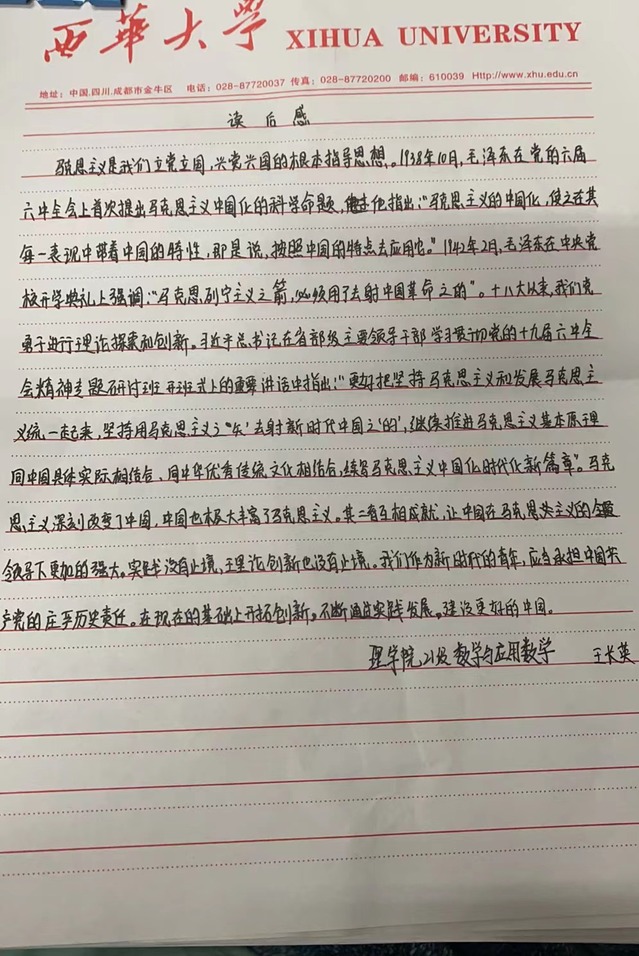 西华大学 XIHUA UNIVERSITY
地址：中国.四川.成都市金牛区 电话：028-87720037 传真：028-87720200 邮编：610039 Http://www.xhu.edu.cn
读后感
马克思主义是我们立党立国，兴党兴国的根本指导思想。1938年10月，毛泽东在党的六届
六中全会上首次提出马克思主义中国化的科学命题，他指出："马克思主义的中国化，使之在其
每一表现中带着中国的特性，即是说，按照中国的特点去应用它。"1942年2月，毛泽东在中央党
校开学典礼上强调："马克思列宁主义之箭，必须用了去射中国革命之的"。十八大以来，我们党
勇于进行理论探索和创新。习近平总书记在省部级主要领导干部学习贯彻党的十九届六中全
会精神专题研讨班开班式上的重要讲话中指出："更好把坚持马克思主义和发展马克思主
义统一起来，坚持用马克思主义之"矢"去射新时代中国之"的"，继续推进马克思主义基本原理
同中国具体实际相结合、同中华优秀传统文化相结合，续写马克思主义中国化时代化新篇章"。马克
思主义深刻改变了中国，中国也极大丰富了马克思主义。其二者互相成就，让中国在马克思主义的
领导下更加的强大。实践没有止境，理论创新也没有止境。我们作为新时代的青年，应当承担中国共
产党的庄严历史责任。在现在的基础上开拓创新，不断通过实践发展，建设更好的中国。
理学院 21级 数学与应用数学 王长英